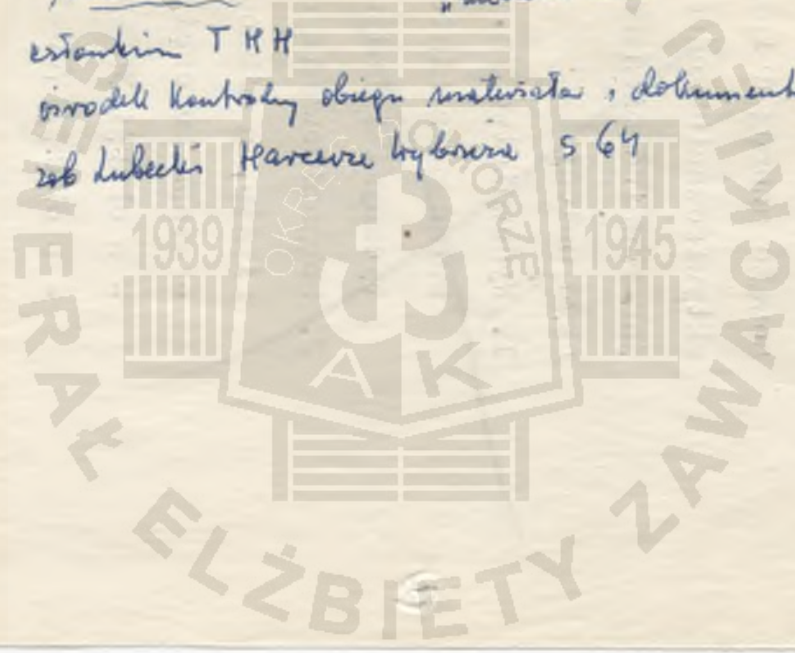 członkiem T H H
ośrodek kontrolny obiegu materiałów i dokument
zob Lubecki Harcerze Wybrzeża s 64
OKRĘG POMORZE
1939
1945
A K
GENERAŁ ELŻBIETY ZAWACKIEJ